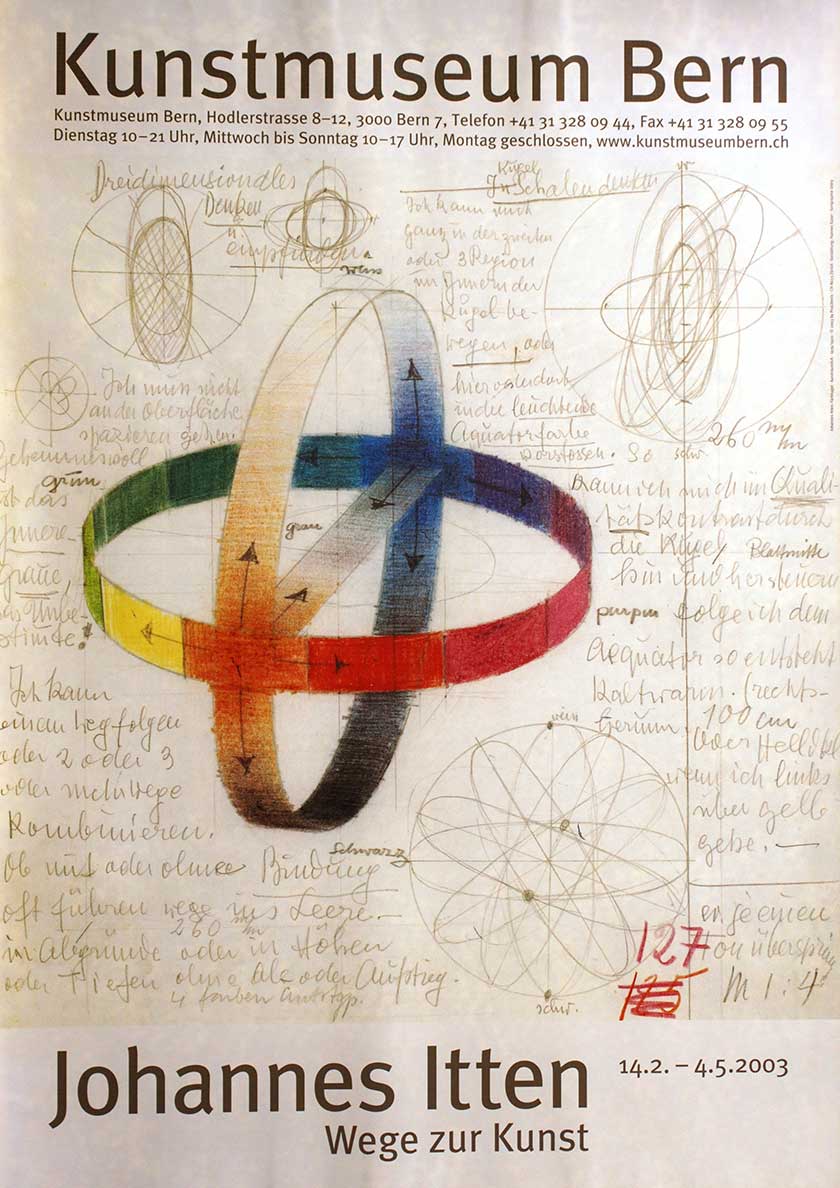 Kunstmuseum Bern
Kunstmuseum Bern, Hodlerstrasse 8–12, 3000 Bern 7, Telefon +41 31 328 09 44, Fax +41 31 328 09 55
Dienstag 10–21 Uhr, Mittwoch bis Sonntag 10–17 Uhr, Montag geschlossen, www.kunstmuseumbern.ch
Dreidimensionales
Denken
u
empfinden.
weiss
Kugel
In Schalen denken
Ich kann mich
ganz in der zweiten
oder 3 Region
im Innern der
Kugel be-
wegen, oder
hier oder dort
in die leuchtende
Aquatorfarbe
vorstossen. So
schw.
260 m/m
Ich muss nicht
an der Oberfläche
spazieren gehen.
Geheimnisvoll
grün
ist das
Innere
Graue,
das Unbe-
stimte!
grau
kann ich mich im Quali-
tätskontrast durch
die Kugel
Blattmitte
hin und her steuern
purpur
folge ich dem
Aequator so entsteht
Kaltwarm. (rechts-
herum.
100 cm
Oder Helldkl
wenn ich links
über gelb
gehe. —
Ich kann
einem Weg folgen
oder 2 oder 3
oder mehr Wege
Kombinieren.
schwarz
Ob mit oder ohne Bindung
oft führen wege ins Leere. —
260 m/m
in Abgründe oder in Höhen
oder Tiefen ohne Ab oder Aufstieg.
4 farben Autotyp.
weiss
schw.
127
125
er je einen
Ton überspringt
M 1:4
Johannes Itten
14.2. – 4.5.2003
Wege zur Kunst